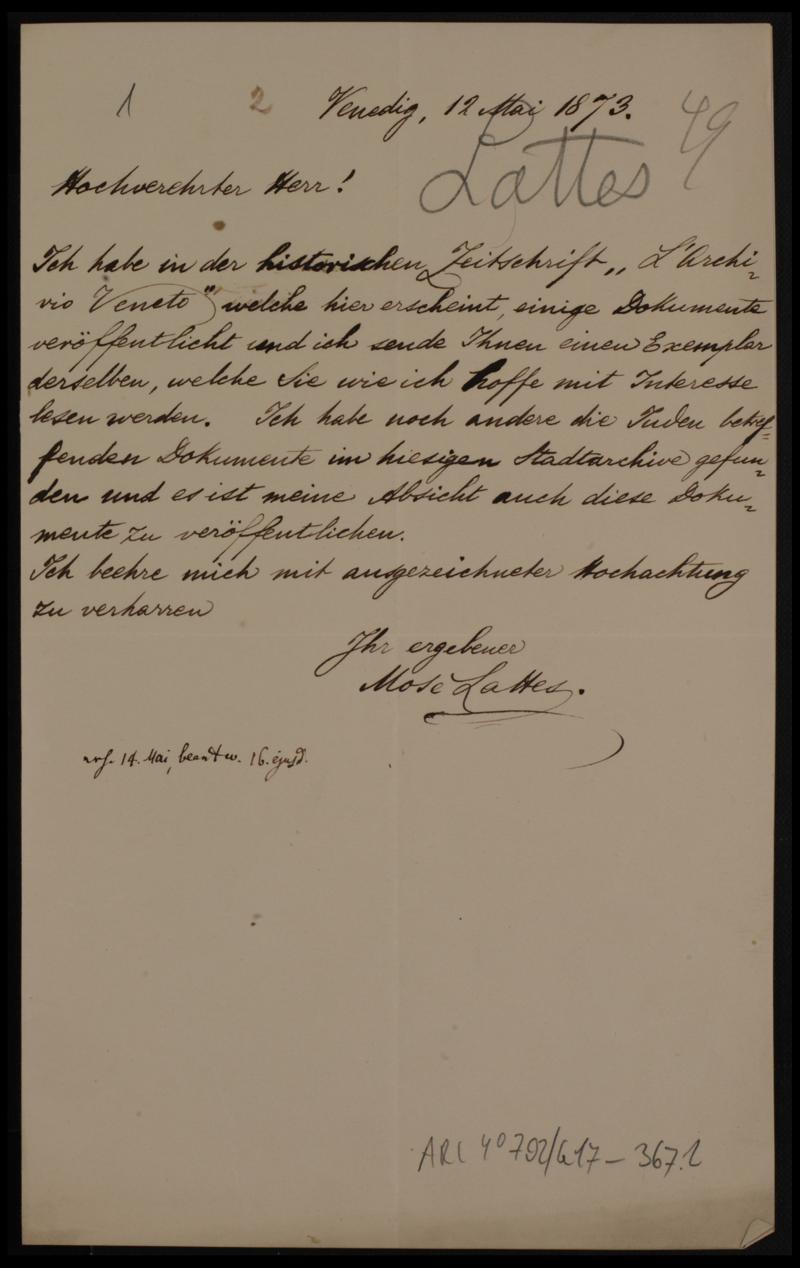 1 2 Venedig, 12 Mai 1873. 49
Lattes
Hochverehrter Herr!
Ich habe in der historischen Zeitschrift „L'Archi-
vio Veneto" welche hier erscheint, einige Dokumente
veröffentlicht und ich sende Ihnen einen Exemplar
derselben, welche Sie wie ich hoffe mit Interesse
lesen werden. Ich habe noch andere die Juden betref-
fenden Dokumente im hiesigen Stadtarchive gefun-
den und es ist meine Absicht auch diese Doku-
mente zu veröffentlichen.
Ich beehre mich mit ausgezeichneter Hochachtung
zu verharren
Ihr ergebener
Mosè Lattes.
14. Mai, beantw. 16. ejusd.
ARC 4° 792/G17-367.1